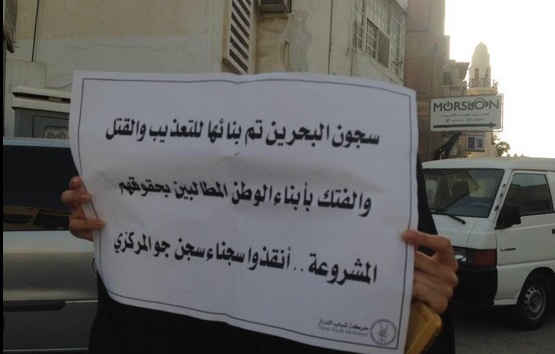 سجون البحرين تم بنائها للتعذيب والقتل
والفتك بأبناء الوطن المطالبين بحقوقهم
المشروعة .. أنقذوا سجناء سجن جو المركزي
حركة شباب الدراز
MORSLOON